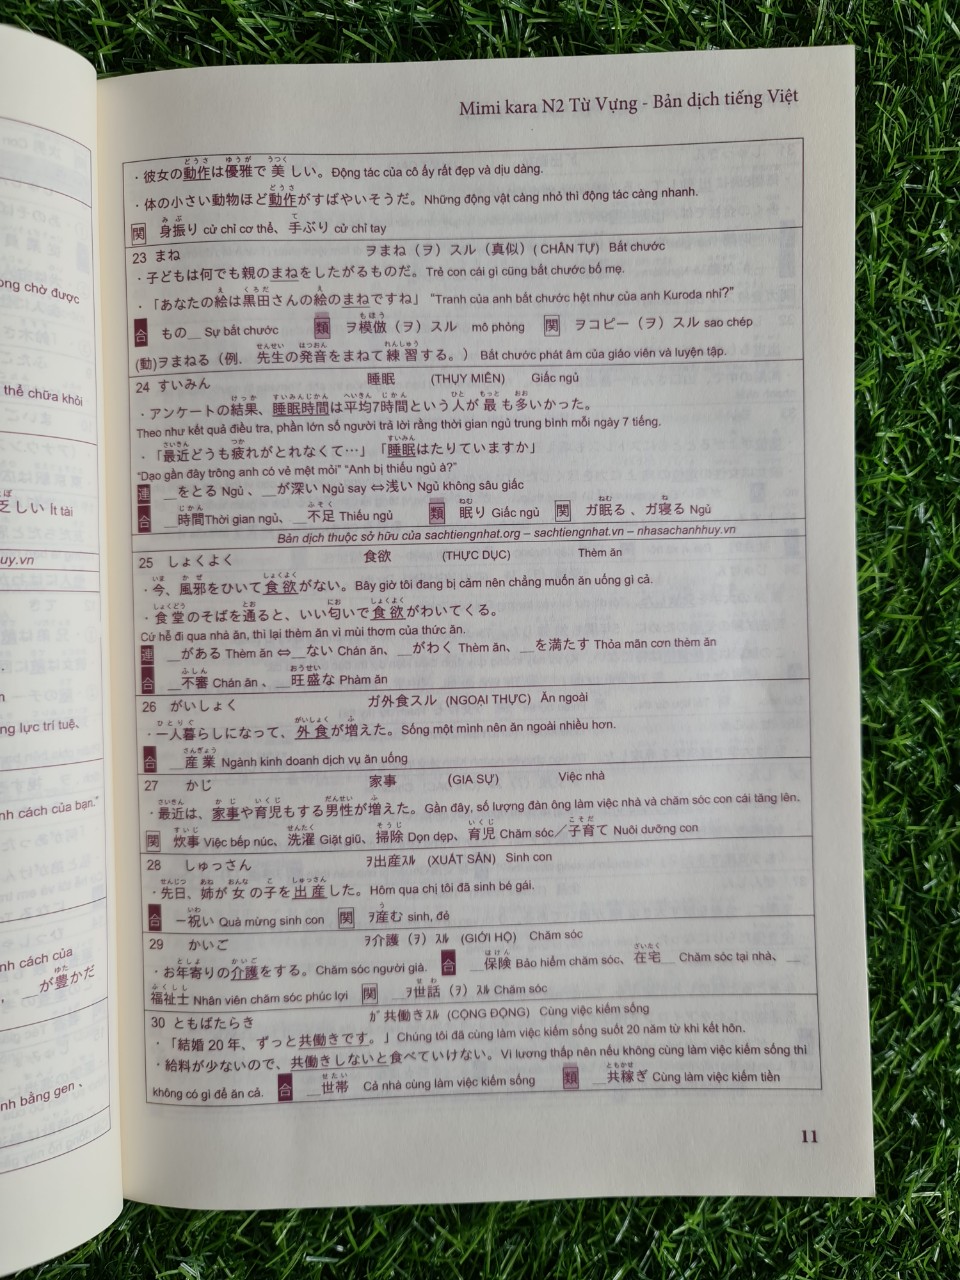 Mimi kara N2 Từ Vựng - Bản dịch tiếng Việt
・彼女の動作は優雅で美しい。Động tác của cô ấy rất đẹp và dịu dàng.
・体の小さい動物ほど動作がすばやいそうだ。Những động vật càng nhỏ thì động tác càng nhanh.
関 身振り cử chỉ cơ thể、手ぶり cử chỉ tay
23 まね ヲまね（ヲ）スル（真似）( CHÂN TỰ ) Bắt chước
・子どもは何でも親のまねをしたがるものだ。Trẻ con cái gì cũng bắt chước bố mẹ.
・「あなたの絵は黒田さんの絵のまねですね」 “Tranh của anh bắt chước hệt như của anh Kuroda nhỉ?”
合 もの＿ Sự bắt chước 類 ヲ模倣（ヲ）スル mô phỏng 関 ヲコピー（ヲ）スル sao chép
(動)ヲまねる（例．先生の発音をまねて練習する。） Bắt chước phát âm của giáo viên và luyện tập.
24 すいみん 睡眠 (THỤY MIÊN) Giấc ngủ
・アンケートの結果、睡眠時間は平均7時間という人が最も多いかった。
Theo như kết quả điều tra, phần lớn số người trả lời rằng thời gian ngủ trung bình mỗi ngày 7 tiếng.
・「最近どうも疲れがとれなくて…」「睡眠はたりていますか」
“Dạo gần đây trông anh có vẻ mệt mỏi” “Anh bị thiếu ngủ à?”
連 ＿をとる Ngủ 、＿が深い Ngủ say ⇔浅い Ngủ không sâu giấc
合 ＿時間Thời gian ngủ、＿不足 Thiếu ngủ 類 眠り Giấc ngủ 関 ガ眠る 、ガ寝る Ngủ
Bản dịch thuộc sở hữu của sachtiengnhat.org – sachtiengnhat.vn – nhasachanhhuy.vn
25 しょくよく 食欲 (THỰC DỤC) Thèm ăn
・今、風邪をひいて食欲がない。Bây giờ tôi đang bị cảm nên chẳng muốn ăn uống gì cả.
・食堂のそばを通ると、いい匂いで食欲がわいてくる。
Cứ hễ đi qua nhà ăn, thì lại thèm ăn vì mùi thơm của thức ăn.
連 ＿がある Thèm ăn ⇔＿ない Chán ăn、＿がわく Thèm ăn、＿を満たす Thỏa mãn cơn thèm ăn
合 ＿不審 Chán ăn 、＿旺盛な Phàm ăn
26 がいしょく ガ外食スル (NGOẠI THỰC) Ăn ngoài
・一人暮らしになって、外食が増えた。Sống một mình nên ăn ngoài nhiều hơn.
合 ＿産業 Ngành kinh doanh dịch vụ ăn uống
27 かじ 家事 (GIA SỰ) Việc nhà
・最近は、家事や育児もする男性が増えた。Gần đây, số lượng đàn ông làm việc nhà và chăm sóc con cái tăng lên.
関 炊事 Việc bếp núc、洗濯 Giặt giũ、掃除 Dọn dẹp、育児 Chăm sóc／子育て Nuôi dưỡng con
28 しゅっさん ｦ出産ｽﾙ (XUẤT SẢN) Sinh con
・先日、姉が女の子を出産した。Hôm qua chị tôi đã sinh bé gái.
合 ー祝い Quà mừng sinh con 関 ｦ産む sinh, đẻ
29 かいご ｦ介護（ヲ）ｽﾙ (GIỚI HỘ) Chăm sóc
・お年寄りの介護をする。Chăm sóc người già. 合 ＿保険 Bảo hiểm chăm sóc、在宅＿ Chăm sóc tại nhà、＿
福祉士 Nhân viên chăm sóc phúc lợi 関 ＿ｦ世話（ヲ）ｽﾙ Chăm sóc
30 ともばたらき ｶﾞ共働きｽﾙ (CỘNG ĐỘNG) Cùng việc kiếm sống
・「結婚 20 年、ずっと共働きです。」Chúng tôi đã cùng làm việc kiếm sống suốt 20 năm từ khi kết hôn.
・給料が少ないので、共働きしないと食べていけない。Vì lương thấp nên nếu không cùng làm việc kiếm sống thì
không có gì để ăn cả. 合 ＿世帯 Cả nhà cùng làm việc kiếm sống 類 ＿共稼ぎ Cùng làm việc kiếm tiền
11
ong chờ được
thể chữa khỏi
乏しい Ít tài
uy.vn
ng lực trí tuệ、
nh cách của bạn.”
nh cách của
、＿が豊かだ
nh bằng gen 、